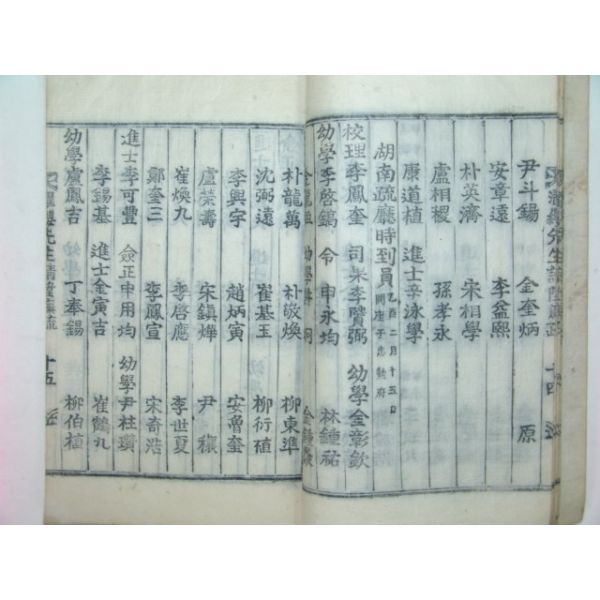 尹斗錫 金奎炳 金原
安章遠 李益熙
朴英濟 宋相學
盧相稷 孫孝永
康道植 進士辛泳學
湖南疏廳時到員 乙酉二月十五日 開座于忠勳府
校理李鳳奎 司果李賢弼 幼學金彰欽
幼學李啓鎬 令申永均 林鍾祐
幼學
朴龍萬 朴敬煥 柳東準
沈弼遠 崔基玉 柳衍植
李興宇 趙炳寅 安魯奎
盧榮壽 宋鎭燁 尹穰
崔煥九 李啓應 李世夏
鄭奎三 李鳳宣 宋奇浩
進士李可豐 僉正申用均 幼學尹柱瓚
李錫基 進士金寅吉 崔鶴九
幼學盧鳳吉 丁奉錫 柳伯植
先生請陞廡疏 十五